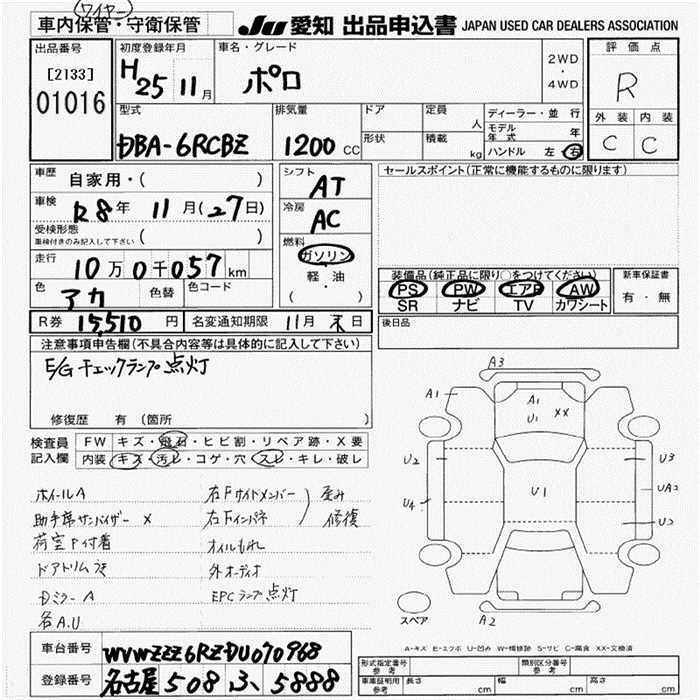 ワイヤー
車内保管・守衛保管
JU 愛知 出品申込書 JAPAN USED CAR DEALERS ASSOCIATION
出品番号
[2133]
01016
初度登録年月
H25 11月
車名・グレード
ポロ
2WD
・
4WD
評価点
R
外装 内装
C C
型式
DBA-6RCBZ
排気量
1200 CC
ドア
形状
定員
人
積載
kg
ディーラー・並行
モデル年式 年
ハンドル 左 右
車歴
自家用・( )
車検
R8年 11月(27日)
受検形態
車検付きのみ記入して下さい ( )
走行
10万0千057km
色
アカ
色替
色コード
シフト
AT
冷房
AC
燃料
ガソリン
軽・油
( ・ )
セールスポイント(正常に機能するものに限ります)
装備品(純正品に限り○をつけてください)
PS PW エアB AW
SR ナビ TV カワシート
新車保証書
有・無
R券 15,510 円 名変通知期限 11月末日
後日品
注意事項申告欄(不具合内容等は具体的に記入して下さい)
E/Gチェックランプ点灯
修復歴 有 (箇所
検査員
記入欄
FW キズ・飛石・ヒビ割・リペア跡・X要
内装 キズ・汚レ・コゲ・穴・スレ・キレ・破レ
ホイールA
助手席サンバイザー ×
荷室P付着
ドアトリムうき
Dミラー A
各A.U
右Fサイドメンバー
右Fインパネ
歪み
修復
オイルもれ
外オーディオ
EPCランプ点灯
A3
A1
A1
U1
XX
U2
U3
U1
U4
UA2
U2
A2
スペア
A-キズ E-エクボ U-凹み W-補修跡 S-サビ C-腐食 XX-交換済
車台番号
WVWZZZ6RZDU070968
登録番号
名古屋 508 ふ 5888
形式指定番号
参考
類別区分番号
参考
車庫証明用
参考
長さ cm 幅 cm 高さ cm